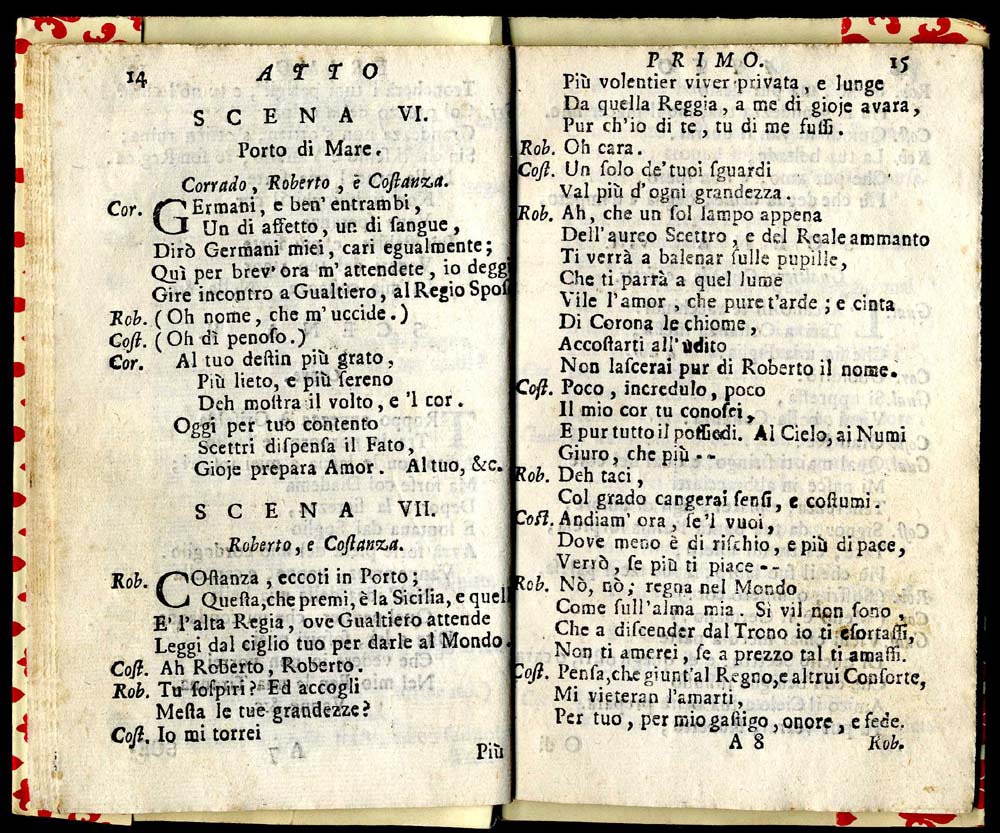 14 ATTO
SCENA VI.
Porto di Mare.
Corrado, Roberto, e Coſtanza.
Cor. GErmani, e ben' entrambi,
Un di affetto, un di ſangue,
Dirò Germani miei, cari egualmente;
Quì per brev' ora m' attendete, io degg
Gire incontro a Gualtiero, al Regio Spoſ
Rob. (Oh nome, che m'uccide.)
Coſt. (Oh dì penoſo.)
Cor. Al tuo deſtin più grato,
Più lieto, e più ſereno
Deh moſtra il volto, e 'l cor.
Oggi per tuo contento
Scettri diſpenſa il Fato,
Gioje prepara Amor. Al tuo, &c.
SCENA VII.
Roberto, e Coſtanza.
Rob. COſtanza, eccoti in Porto;
Queſta, che premi, è la Sicilia, e quell
E' l'alta Regia, ove Gualtiero attende
Leggi dal ciglio tuo per darle al Mondo.
Coſt. Ah Roberto, Roberto.
Rob. Tu ſoſpiri? Ed accogli
Meſta le tue grandezze?
Coſt. Io mi torrei
A 7 Più
PRIMO. 15
Più volentier viver privata, e lunge
Da quella Reggia, a me di gioje avara,
Pur ch'io di te, tu di me fuſſi.
Rob. Oh cara.
Coſt. Un ſolo de' tuoi ſguardi
Val più d'ogni grandezza.
Rob. Ah, che un ſol lampo appena
Dell'aureo Scettro, e del Reale ammanto
Ti verrà a balenar ſulle pupille,
Che ti parrà a quel lume
Vile l'amor, che pure t'arde; e cinta
Di Corona le chiome,
Accoſtarti all' udito
Non laſcerai pur di Roberto il nome.
Coſt. Poco, incredulo, poco
Il mio cor tu conoſci,
E pur tutto il poſſiedi. Al Cielo, ai Numi
Giuro, che più --
Rob. Deh taci,
Col grado cangerai ſenſi, e coſtumi.
Coſt. Andiam' ora, ſe 'l vuoi,
Dove meno è di riſchio, e più di pace,
Verrò, ſe più ti piace --
Rob. Nò, nò; regna nel Mondo
Come ſull'alma mia. Sì vil non ſono,
Che a diſcender dal Trono io ti eſortaſſi,
Non ti amerei, ſe a prezzo tal ti amaſſi.
Coſt. Penſa, che giunt'al Regno, e altrui Conſorte,
Mi vieteran l'amarti,
Per tuo, per mio gaſtigo, onore, e fede.
A 8 Rob.